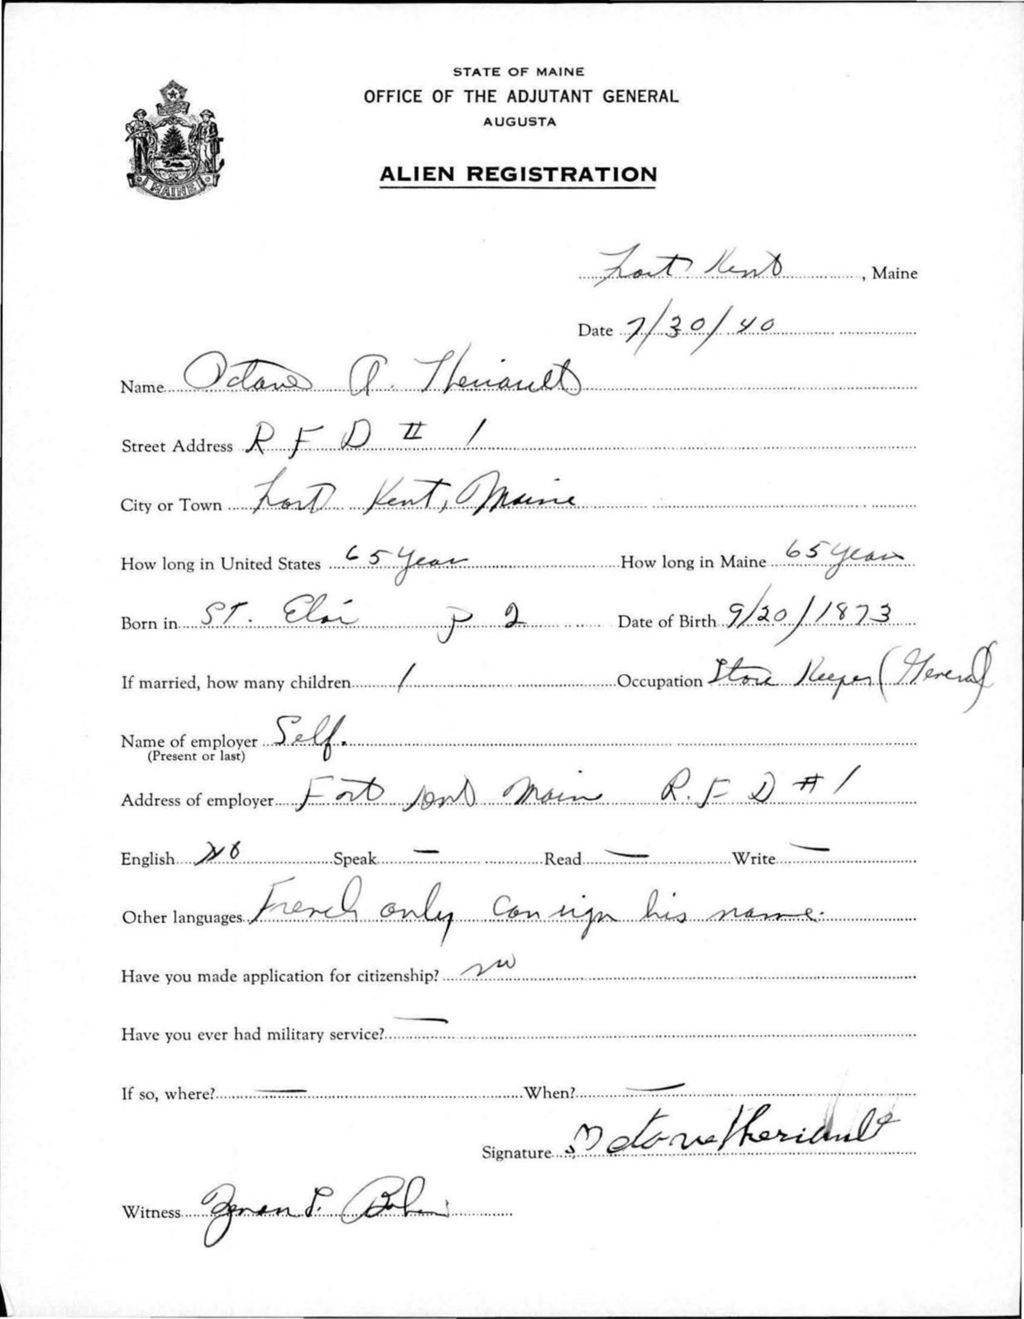 STATE OF MAINE
OFFICE OF THE ADJUTANT GENERAL
AUGUSTA
ALIEN REGISTRATION
MAINE
Fort Kent, Maine
Date 7/30/40
Name Octave A. Theriault
Street Address R F D # 1
City or Town Fort Kent, Maine
How long in United States 65 Year How long in Maine 65 Year
Born in St. Eloi P 2 Date of Birth 9/20/1873
If married, how many children 1 Occupation Store Keeper (General)
Name of employer Self.
(Present or last)
Address of employer Fort Kent Maine R. F D # 1
English No Speak — Read — Write —
Other languages French only Can sign his name.
Have you made application for citizenship? no
Have you ever had military service? —
If so, where? — When? —
Signature Octave Theriault
Witness P.